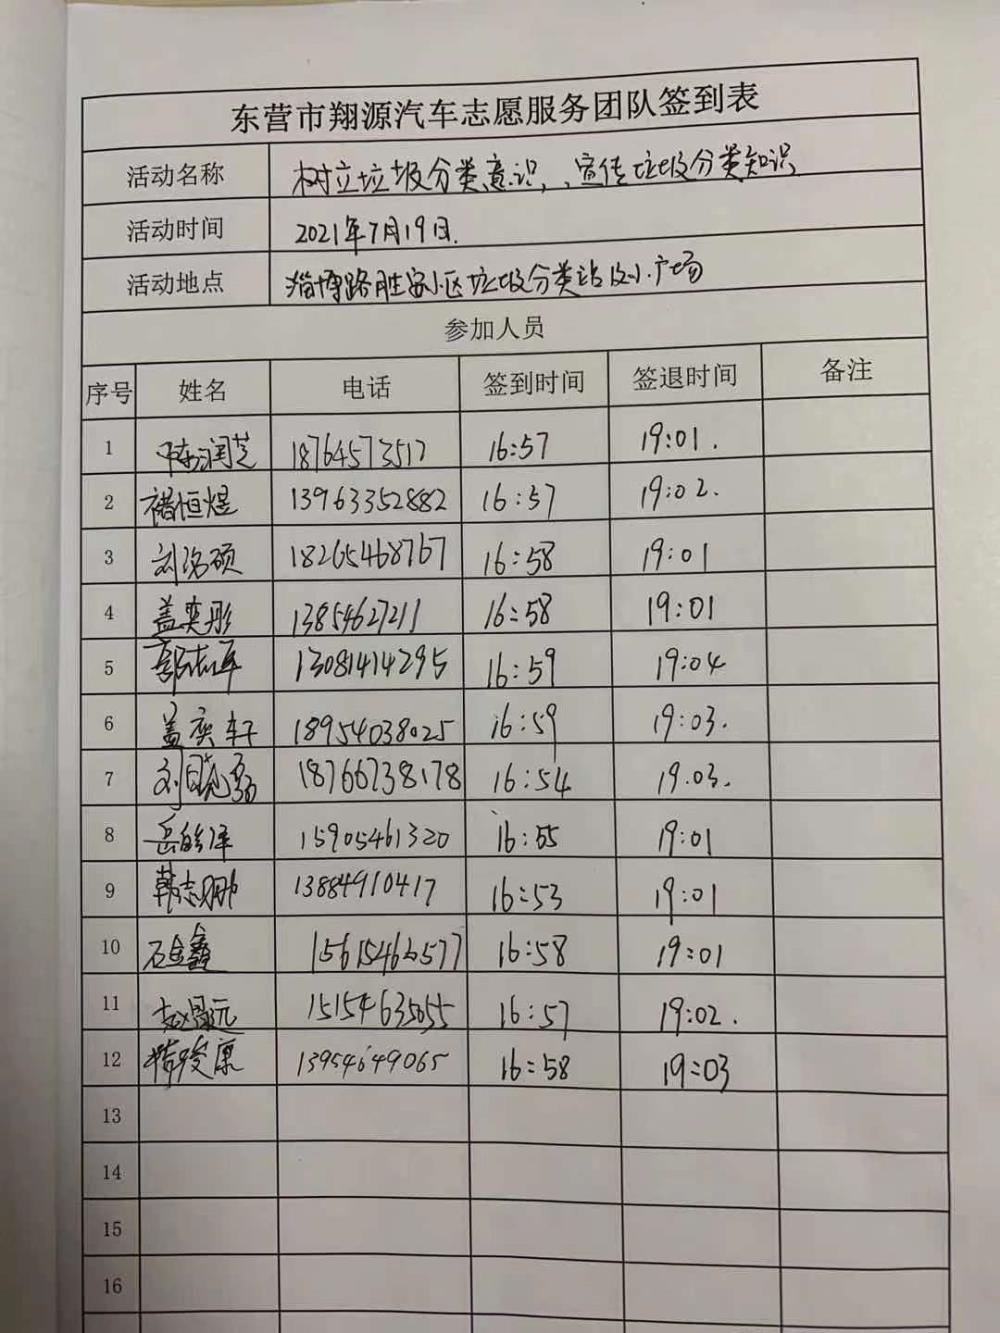 东营市翔源汽车志愿服务团队签到表
活动名称 树立垃圾分类意识，宣传垃圾分类知识
活动时间 2021年7月19日.
活动地点 淄博路胜安小区垃圾分类站及小广场
参加人员
序号 姓名 电话 签到时间 签退时间 备注
1 陈润芝 18764573517 16:57 19:01.
2 褚恒煜 13963352882 16:57 19:02.
3 刘洺硕 18265468767 16:58 19:01
4 盖奕彤 13854627211 16:58 19:01
5 13081414295 16:59 19:04
6 盖奕轩 18954038025 16:59 19:03.
7 刘 18766738178 16:54 19.03.
8 岳 15905461320 16:55 19:01
9 韩志 13884910417 16:53 19:01
10 石金鑫 16:58 19:01
11 赵 远 16:57 19:02.
12 康 13954649065 16:58 19:03
13
14
15
16